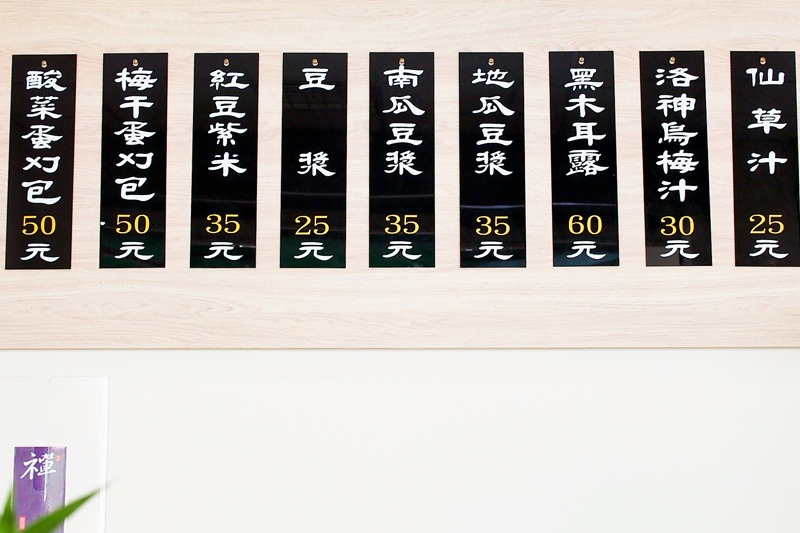 酸菜蛋刈包50元
梅干蛋刈包50元
紅豆紫米35元
豆漿25元
南瓜豆漿35元
地瓜豆漿35元
黑木耳露60元
洛神烏梅汁30元
仙草汁25元
禪